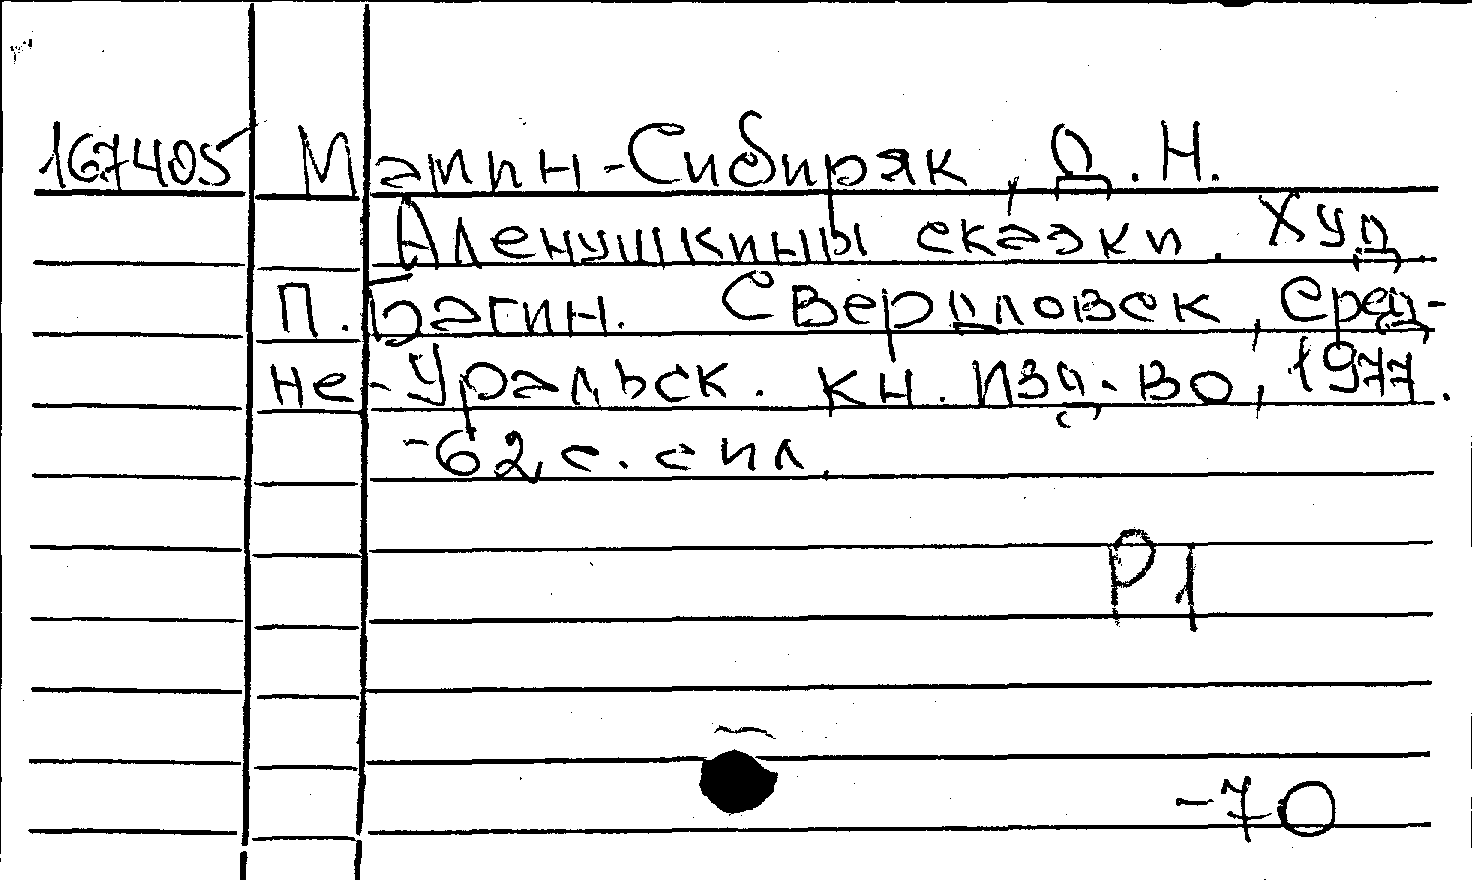 167405 Мамин-Сибиряк, Д. Н.
Аленушкины сказки. Худ.
П. Багин. Свердловск, Сред-
не-Уральск. кн. изд-во, 1977.
-62 с. с ил.
Р1
-70